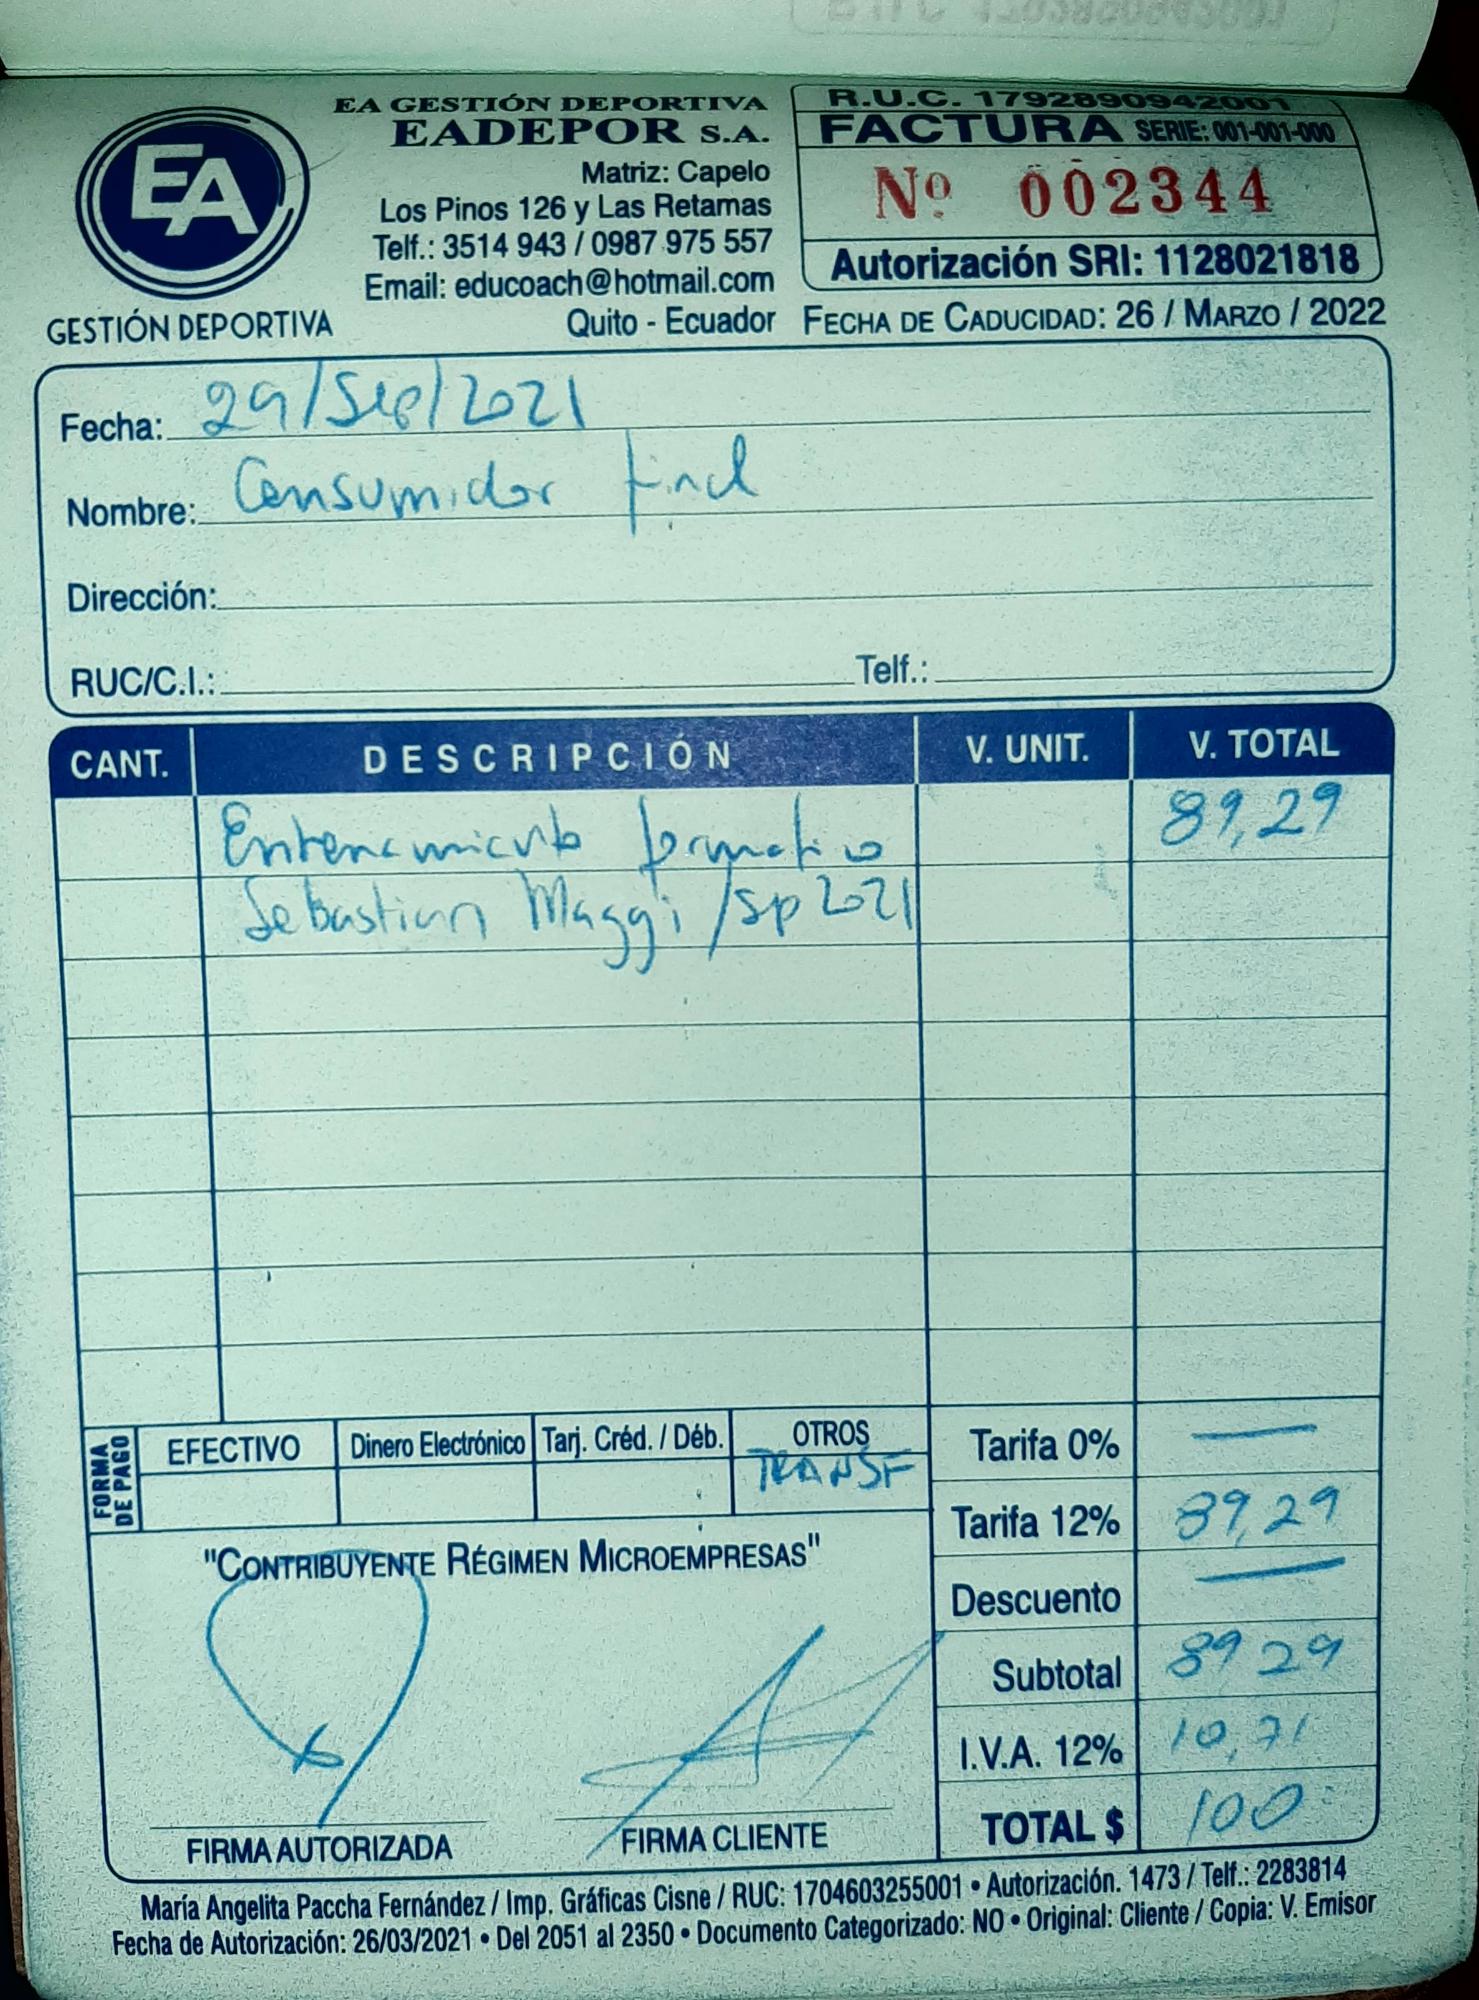 EA
GESTIÓN DEPORTIVA
EA GESTIÓN DEPORTIVA
EADEPOR S.A.
Matriz: Capelo
Los Pinos 126 y Las Retamas
Telf.: 3514 943 / 0987 975 557
Email: educoach@hotmail.com
Quito - Ecuador
R.U.C. 1792890942001
FACTURA SERIE: 001-001-000
Nº 002344
Autorización SRI: 1128021818
FECHA DE CADUCIDAD: 26 / MARZO / 2022
Fecha: 29/Sep/2021
Nombre: Consumidor final
Dirección:
RUC/C.I.: Telf.:
CANT. DESCRIPCIÓN V. UNIT. V. TOTAL
Entrenamiento formativo 89,29
Sebastian Maggi /Sp 2021
FORMA DE PAGO
EFECTIVO Dinero Electrónico Tarj. Créd. / Déb. OTROS
TRANSF
Tarifa 0% —
Tarifa 12% 89,29
Descuento —
Subtotal 89 29
I.V.A. 12% 10,71
TOTAL $ 100
"CONTRIBUYENTE RÉGIMEN MICROEMPRESAS"
FIRMA AUTORIZADA FIRMA CLIENTE
María Angelita Paccha Fernández / Imp. Gráficas Cisne / RUC: 1704603255001 • Autorización. 1473 / Telf.: 2283814
Fecha de Autorización: 26/03/2021 • Del 2051 al 2350 • Documento Categorizado: NO • Original: Cliente / Copia: V. Emisor